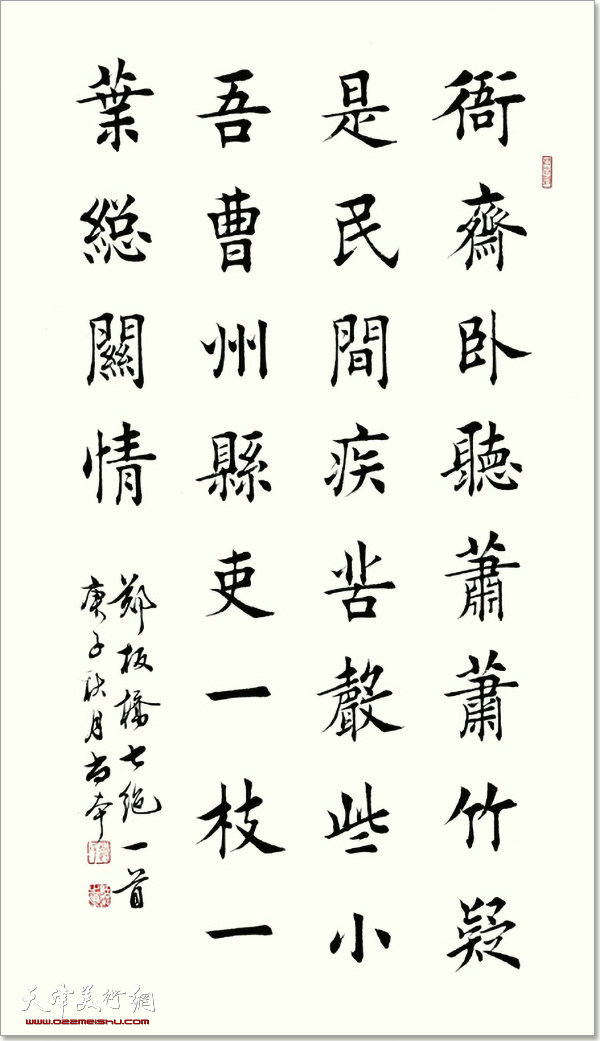 衙齋卧聽蕭蕭竹疑
是民間疾苦聲些小
吾曹州縣吏一枝一
葉緫關情
鄭板橋七絶一首
庚子秋月尚本
天津美術網
www.022meishu.com